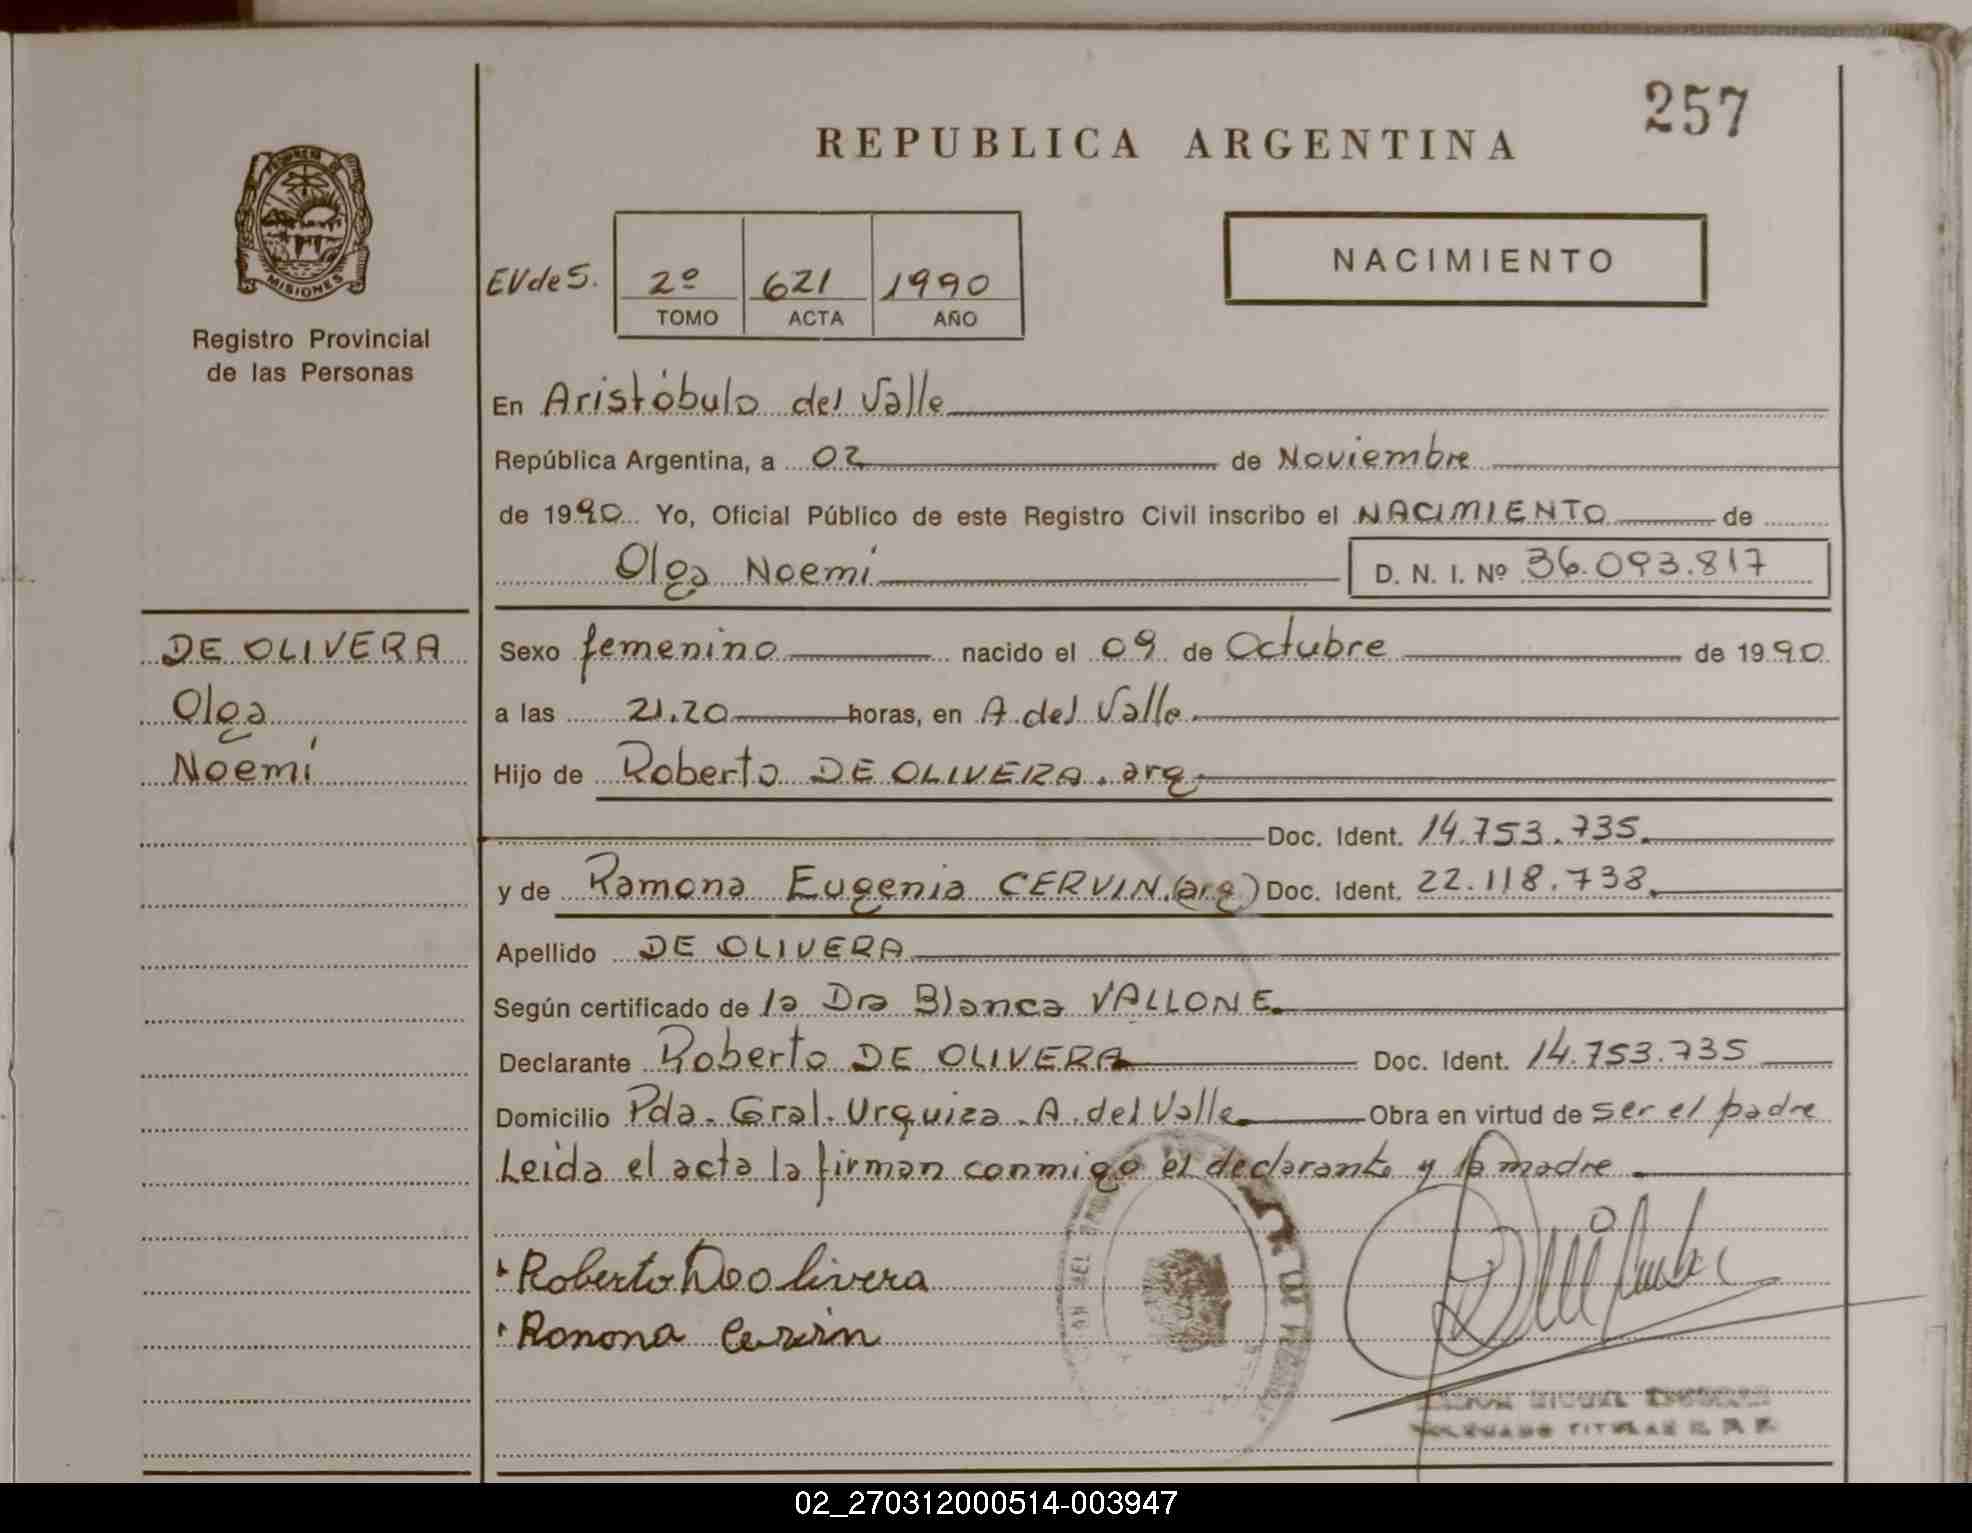 257
REPUBLICA ARGENTINA
PROVINCIA DE
MISIONES
Registro Provincial
de las Personas
EV de S. 2º 621 1990
TOMO ACTA AÑO
NACIMIENTO
En Aristóbulo del Valle
República Argentina, a 02 de Noviembre
de 1990 Yo, Oficial Público de este Registro Civil inscribo el NACIMIENTO de
Olga Noemí D. N. I. Nº 36.093.817
DE OLIVERA
Olga
Noemí
Sexo femenino nacido el 09 de Octubre de 1990
a las 21.20 horas, en A. del Valle
Hijo de Roberto DE OLIVERA. arg.
Doc. Ident. 14.753.735.
y de Ramona Eugenia CERVIN. (arg) Doc. Ident. 22.118.738.
Apellido DE OLIVERA
Según certificado de la Dra Blanca VALLONE.
Declarante Roberto DE OLIVERA Doc. Ident. 14.753.735
Domicilio Pda. Gral. Urquiza. A. del Valle Obra en virtud de ser el padre
Leida el acta la firman conmigo el declarante y la madre.
Roberto Deolivera
Ramona Cervin
TITULAR
02_270312000514-003947